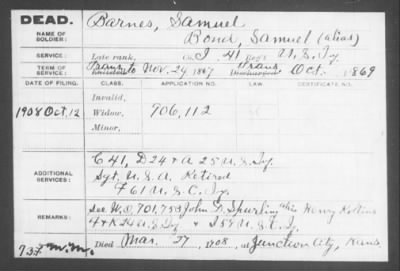 DEAD.
NAME OF SOLDIER:
Barnes, Samuel
Bond, Samuel (alias)
SERVICE:
Late rank, Co. I, 41 Reg't U.S. Inf
TERM OF SERVICE:
Trans to Nov. 24, 1867 Trans Oct. 1869
DATE OF FILING. CLASS. APPLICATION NO. LAW. CERTIFICATE NO.
Invalid,
1908 Oct. 12 Widow, 906,112
Minor,
ADDITIONAL SERVICES:
C 41, D 24 & A 25 U.S. Inf
Sgt. U.S.A. Retired
F 61 U.S.C. Inf
REMARKS:
See W.O 701,753 John D. Spurling alias Henry
4 & K 24 U.S. Inf & I 59 U.S.C. Inf
Died Mar. 27, 1908, at Junction City, Kans.